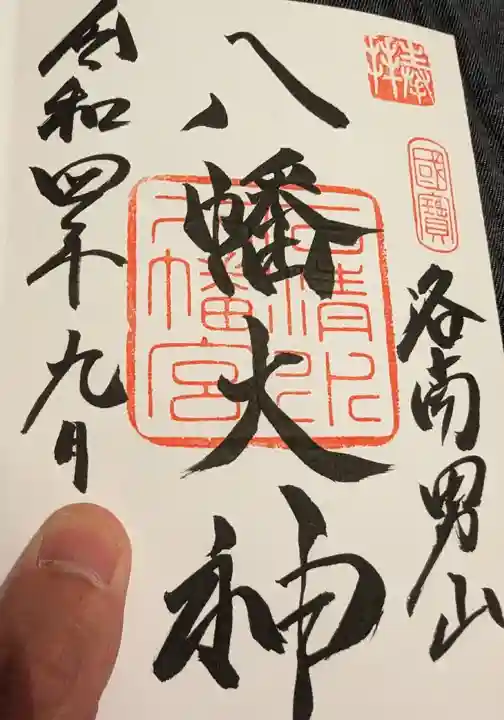 奉拝
國寶
洛南男山
八幡大神
石清水八幡宮
令和四年九月